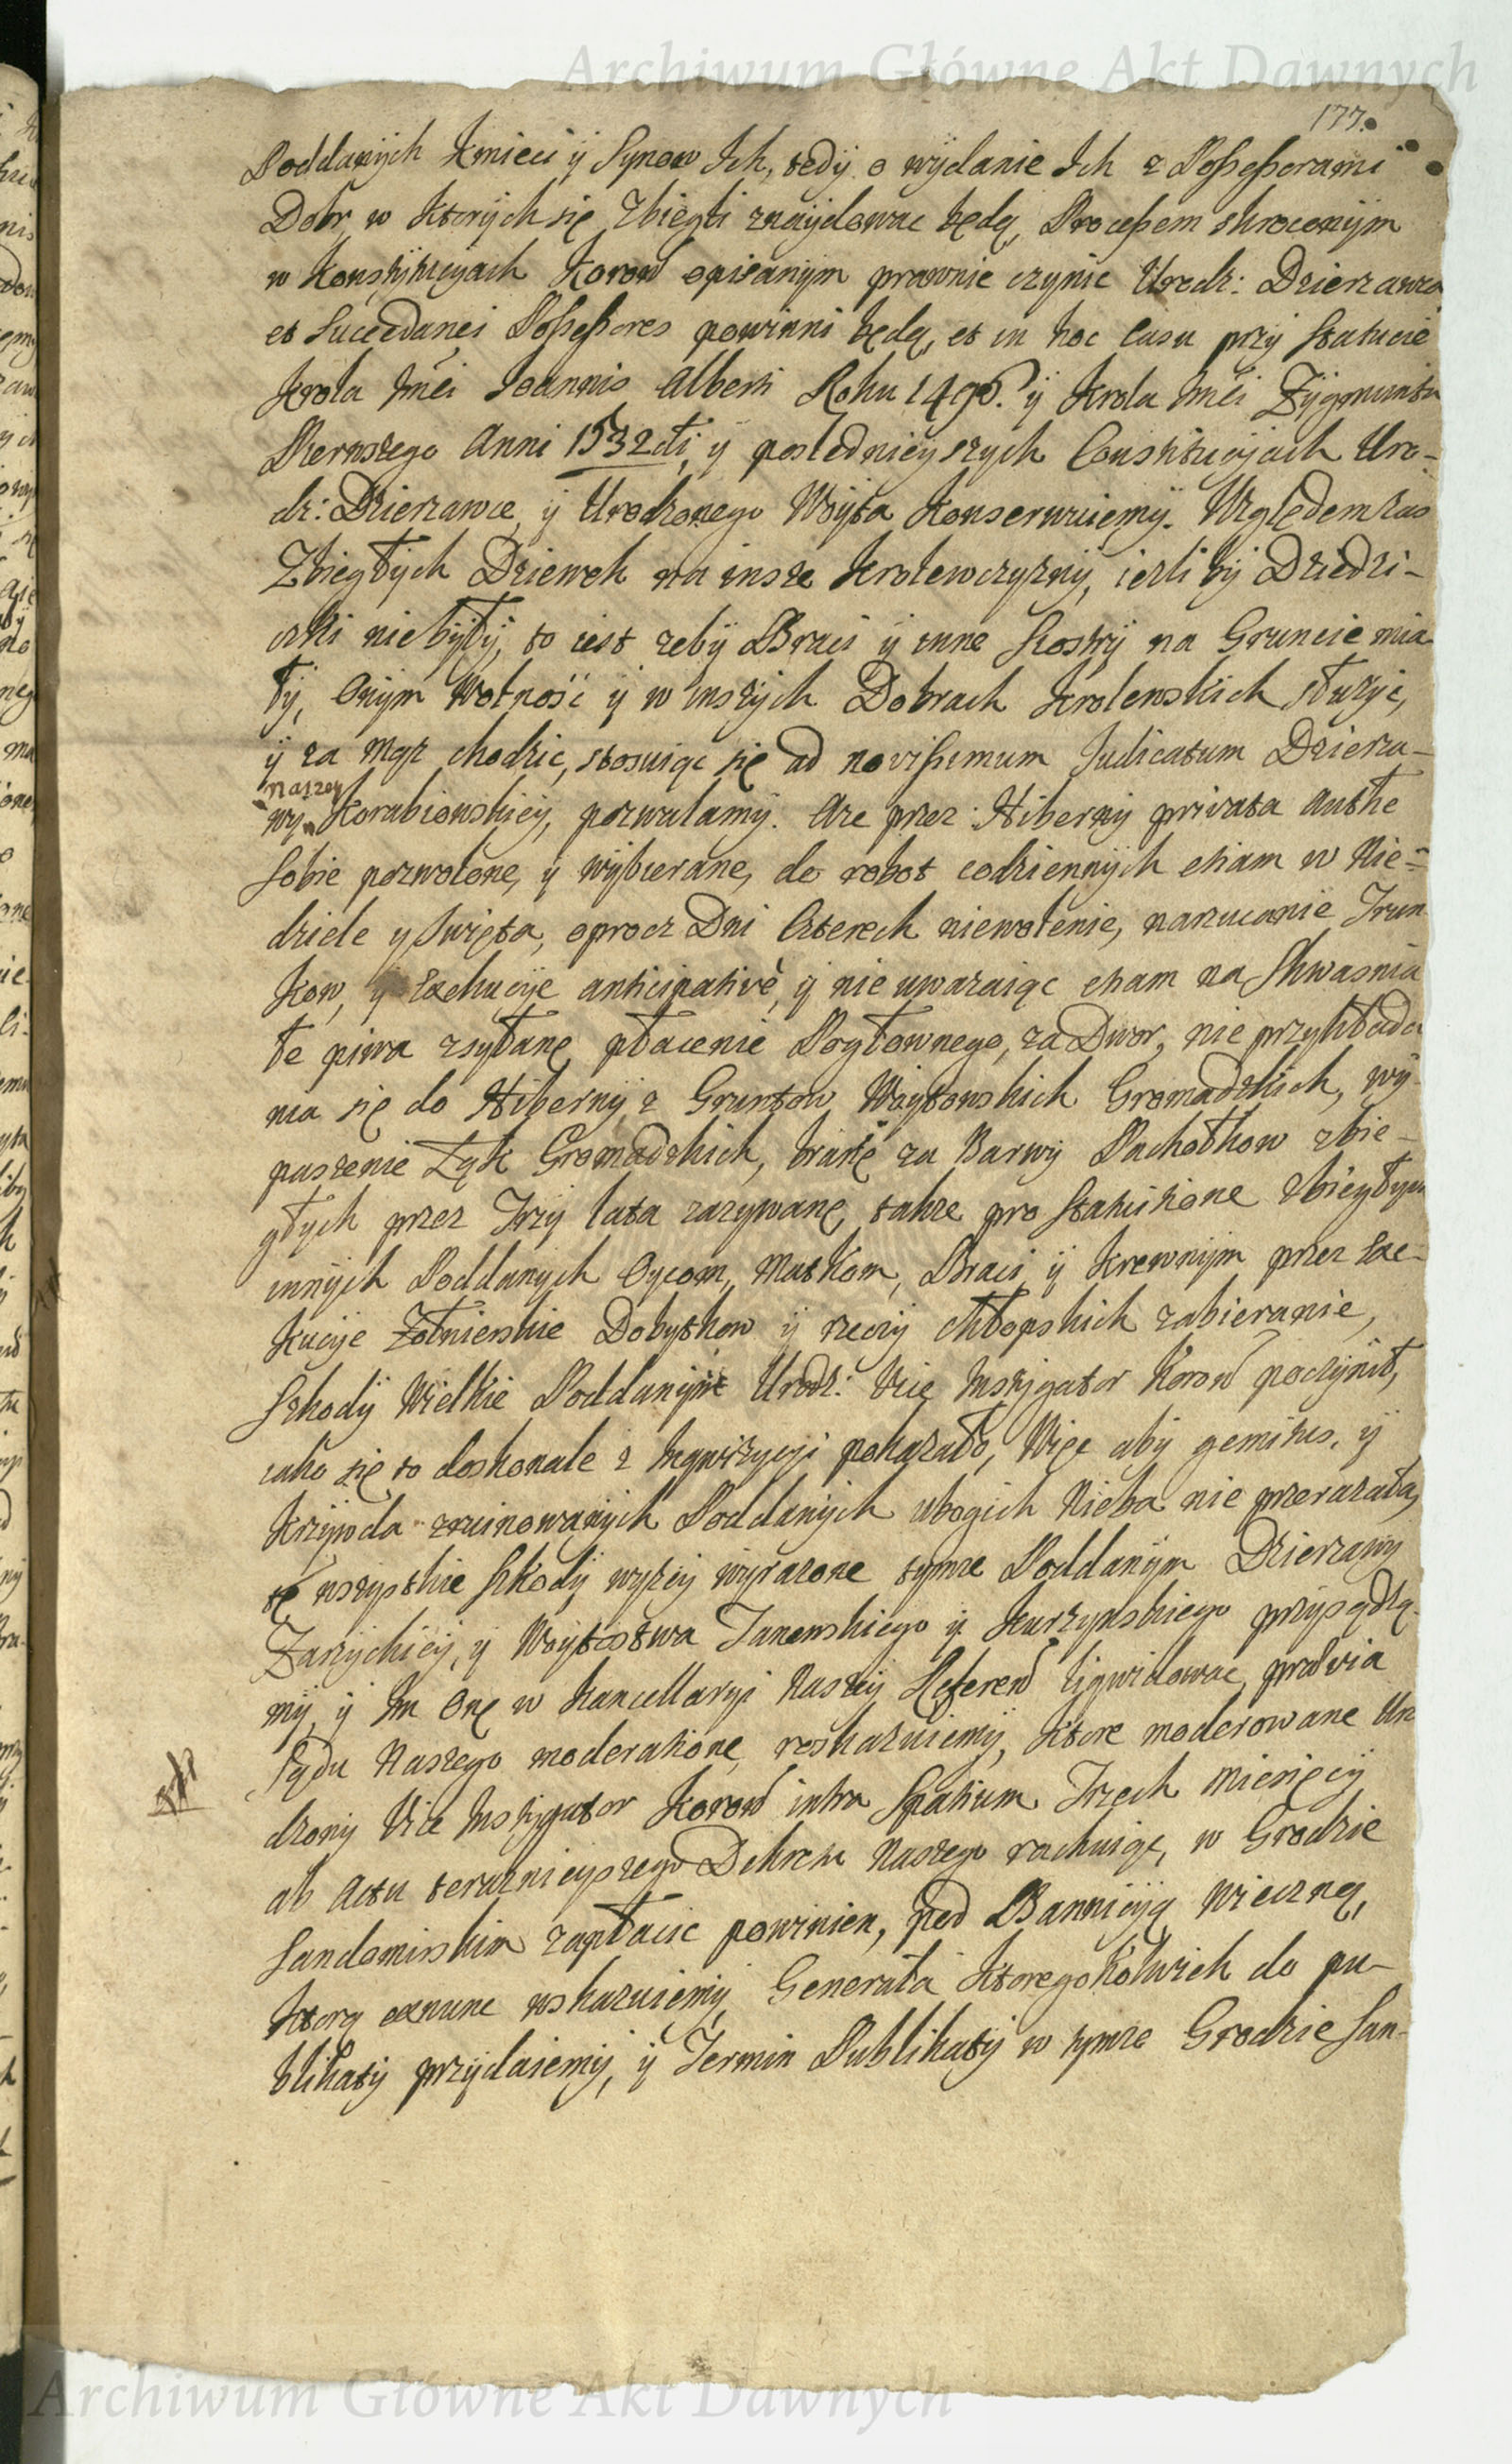 Archiwum Główne Akt Dawnych
177.
Poddanych Kmieci ÿ Synow Ich, tedÿ o wÿdanie Ich z Possessorami
Dobr, w ktorÿch się Zbiegli znaÿdowac będą, Processem skroconÿm
w Konstÿtucÿach Koron opisanÿm prawnie czÿnic Urodz: Dzierzawca
et Succedanei Possessores powinni będą, et in hoc Casu przÿ Statucie
Krola Jmci Joannis Alberti Roku 1496. ÿ Krola Jmci Zÿgmunta
Pierwszego Anni 1532di, ÿ poslednieÿszych Constitucÿach Uro-
dz: Dzierzawce, ÿ Urodzonego Woÿta konserwuiemÿ. Względem zas
Zbiegłÿch Dziewek na insze Krolewczyznÿ, iezli bÿ Dziedzi-
czki nie bÿłÿ, to iest zebÿ Braci ÿ inne Siostrÿ na Gruncie mia
łÿ, Onÿm Wolność ÿ w inszÿch Dobrach Krolewskich słuzÿc,
ÿ za Mąz chodzic, stosuiąc się ad novissimum Judicatum Dzierza-
naszeÿ
wÿ Korabiowskieÿ, pozwalamÿ. Aze przez Hibernÿ privata Authte
sobie pozwolone, ÿ wÿbierane, do robot codziennÿch etiam w Nie-
dziele ÿ Swięta, oprocz Dni Czterech niewolenie, narzucanie Trun
kow, ÿ Exekucÿe anticipativè, ÿ nie uwazaiąc etiam na Skwasnia
łe piwa zsÿłane, płacenie Pogłownego, za Dwor, nie przÿkłada
nia się do Hibernÿ z Gruntow Woÿtowskich Gromadzkich, wÿ-
paszenie Łąk Gromadzkich, branie za Barwÿ Pachołkow zbie-
głÿch przez Trzÿ lata zazÿwane, takze pro Statutione zbiegłÿm
innÿch Poddanÿch Oÿcom, Matkom, Braci, ÿ Krewnÿm przez Exe-
kucÿe Zołnierskie Dobÿtkow ÿ rzeczÿ chłopskich zabieranie,
Szkodÿ Wielkie Poddanÿm Urodz: Vice Instÿgator Koron poczÿnił,
iako się to doskonale z Inqwizÿcÿi pokazało, Więc abÿ gemitus, ÿ
Krzÿwda zruinowanÿch Poddanÿch ubogich Nieba nie przerazała,
te wszÿstkie szkodÿ wÿzeÿ wÿrazone tÿmze Poddanÿm Dzierzawÿ
Zarzÿckieÿ, ÿ Woÿtostwa Tanewskiego ÿ Kurzÿnskiego przÿsądza
mÿ, ÿ Im One w Kancellarÿi Naszeÿ Referen liqwidowac, prævia
Sądu Naszego moderatione, roskazuiemÿ, Ktore moderowane Uro
dzonÿ Vice Instÿgator Koron intra Spatium Trzech Miesięcÿ
ab Actu teraznieÿszego Dekretu Naszego rachuiąc, w Grodzie
Sandomirskim zapłacic powinien, pod Bannicÿą Wieczną,
Ktorą exnunc wskazuiemÿ, Generała ktoregokolwiek do pu-
blikatÿ przÿdaiemÿ, ÿ Termin Publikatÿ w tÿmze Grodzie San-
Archiwum Główne Akt Dawnych